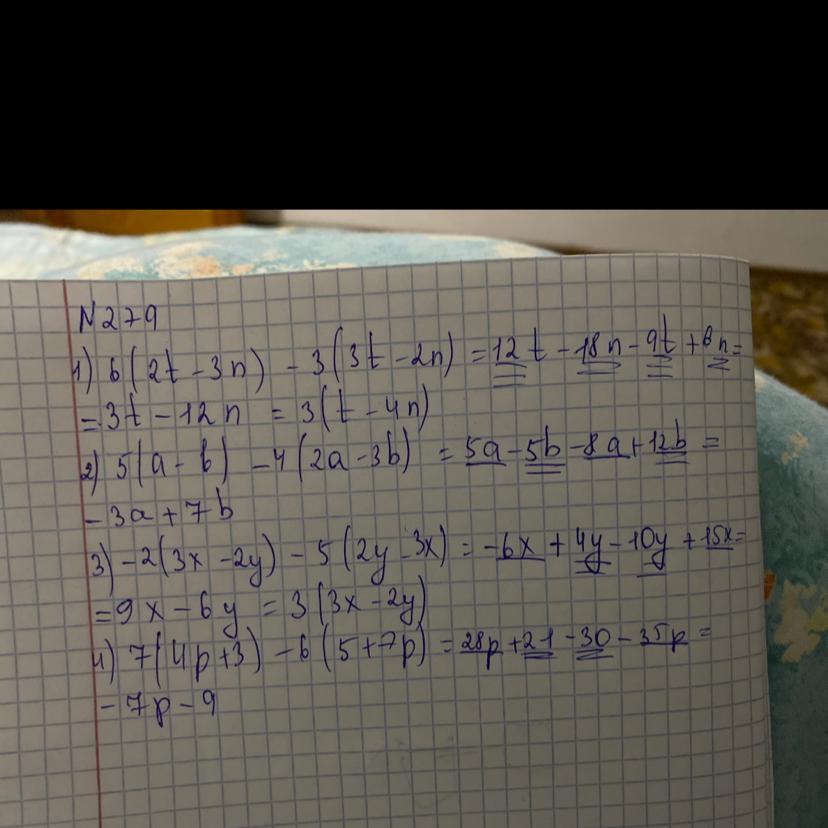 N279
1) 6(2t - 3n) - 3(3t - 2n) = 12t - 18n - 9t + 6n =
= 3t - 12n = 3(t - 4n)
2) 5(a - b) - 4(2a - 3b) = 5a - 5b - 8a + 12b =
- 3a + 7b
3) -2(3x - 2y) - 5(2y - 3x) = -6x + 4y - 10y + 15x =
= 9x - 6y = 3(3x - 2y)
4) 7(4p + 3) - 6(5 + 7p) = 28p + 21 - 30 - 35p =
- 7p - 9